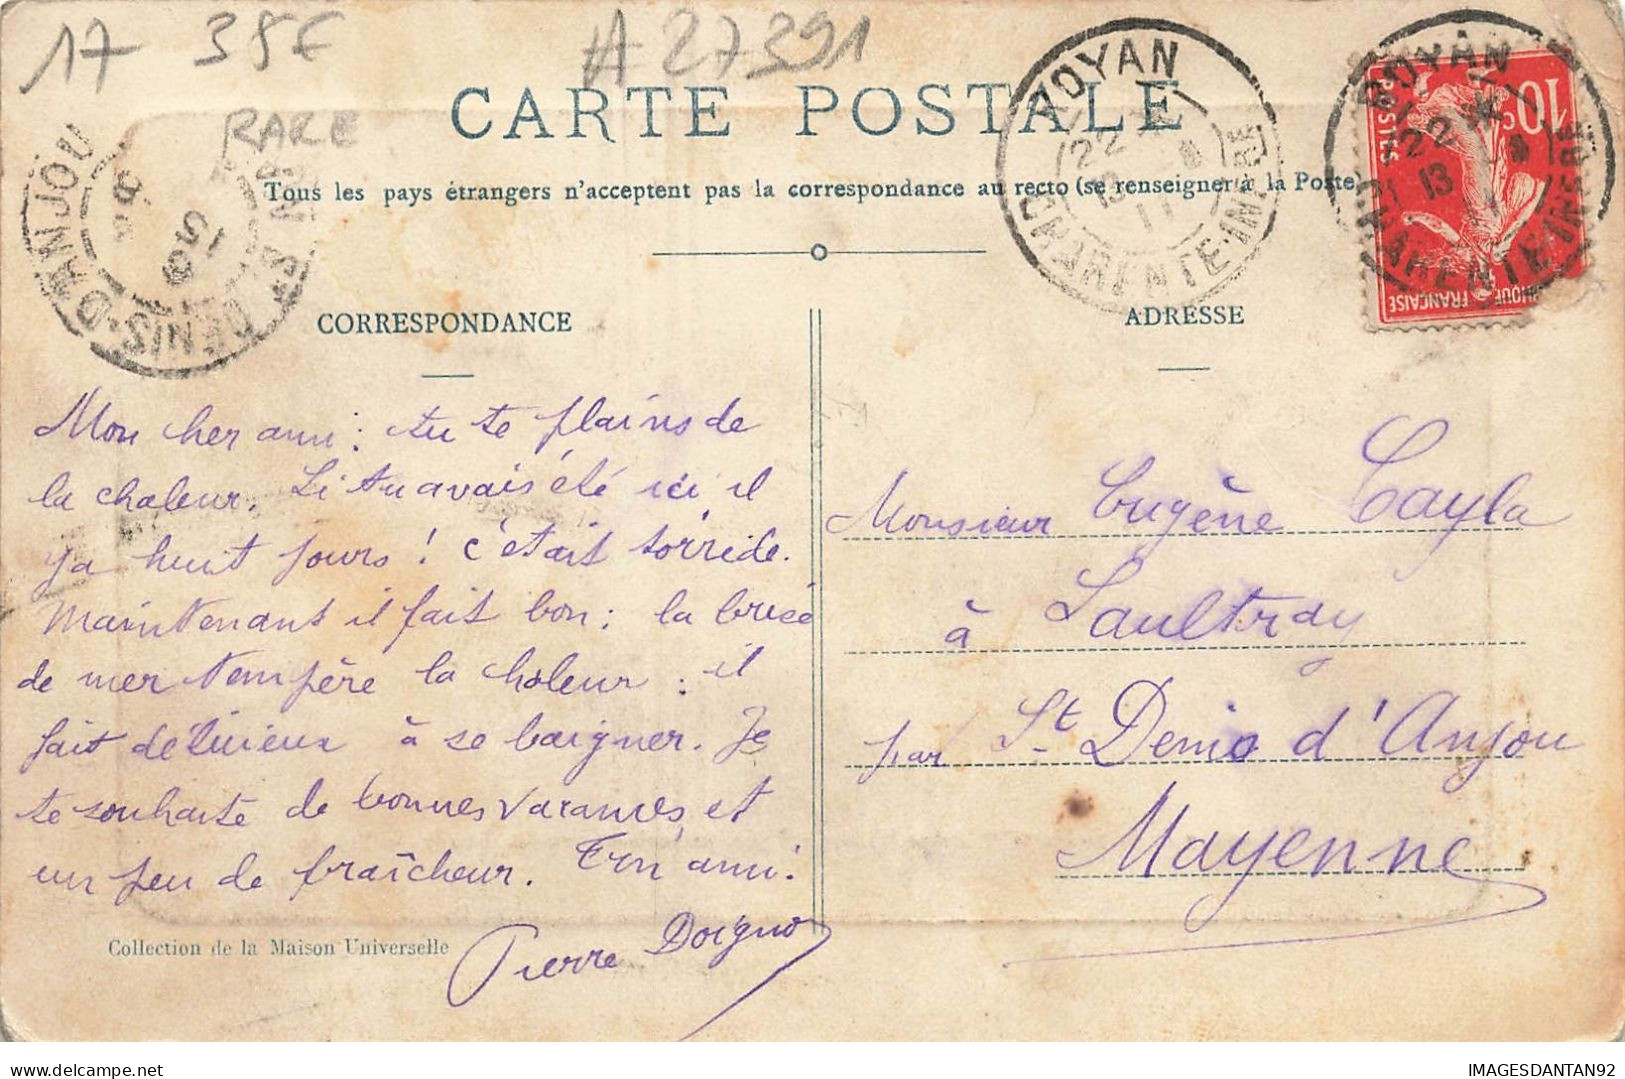 17 35€ #27391
RARE
CARTE POSTALE
Tous les pays étrangers n'acceptent pas la correspondance au recto (se renseigner à la Poste)
ROYAN
22
13
11
CHARENTE-INFRE
ROYAN
22
13
11
CHARENTE-INFRE
10c
POSTES
FRANÇAISE
ST DENIS-D'ANJOU
CORRESPONDANCE
ADRESSE
Mon cher ami : tu te plains de
la chaleur. Si tu avais été ici il
y a huit jours ! c'était torride.
Maintenant il fait bon : la brise
de mer tempère la chaleur : il
fait délicieux à se baigner. Je
te souhaite de bonnes vacances, et
un peu de fraîcheur. Ton ami.
Pierre Doigno
Monsieur Eugène Cayla
à Laultray
par St Denis d'Anjou
Mayenne
Collection de la Maison Universelle
IMAGESDANTAN92